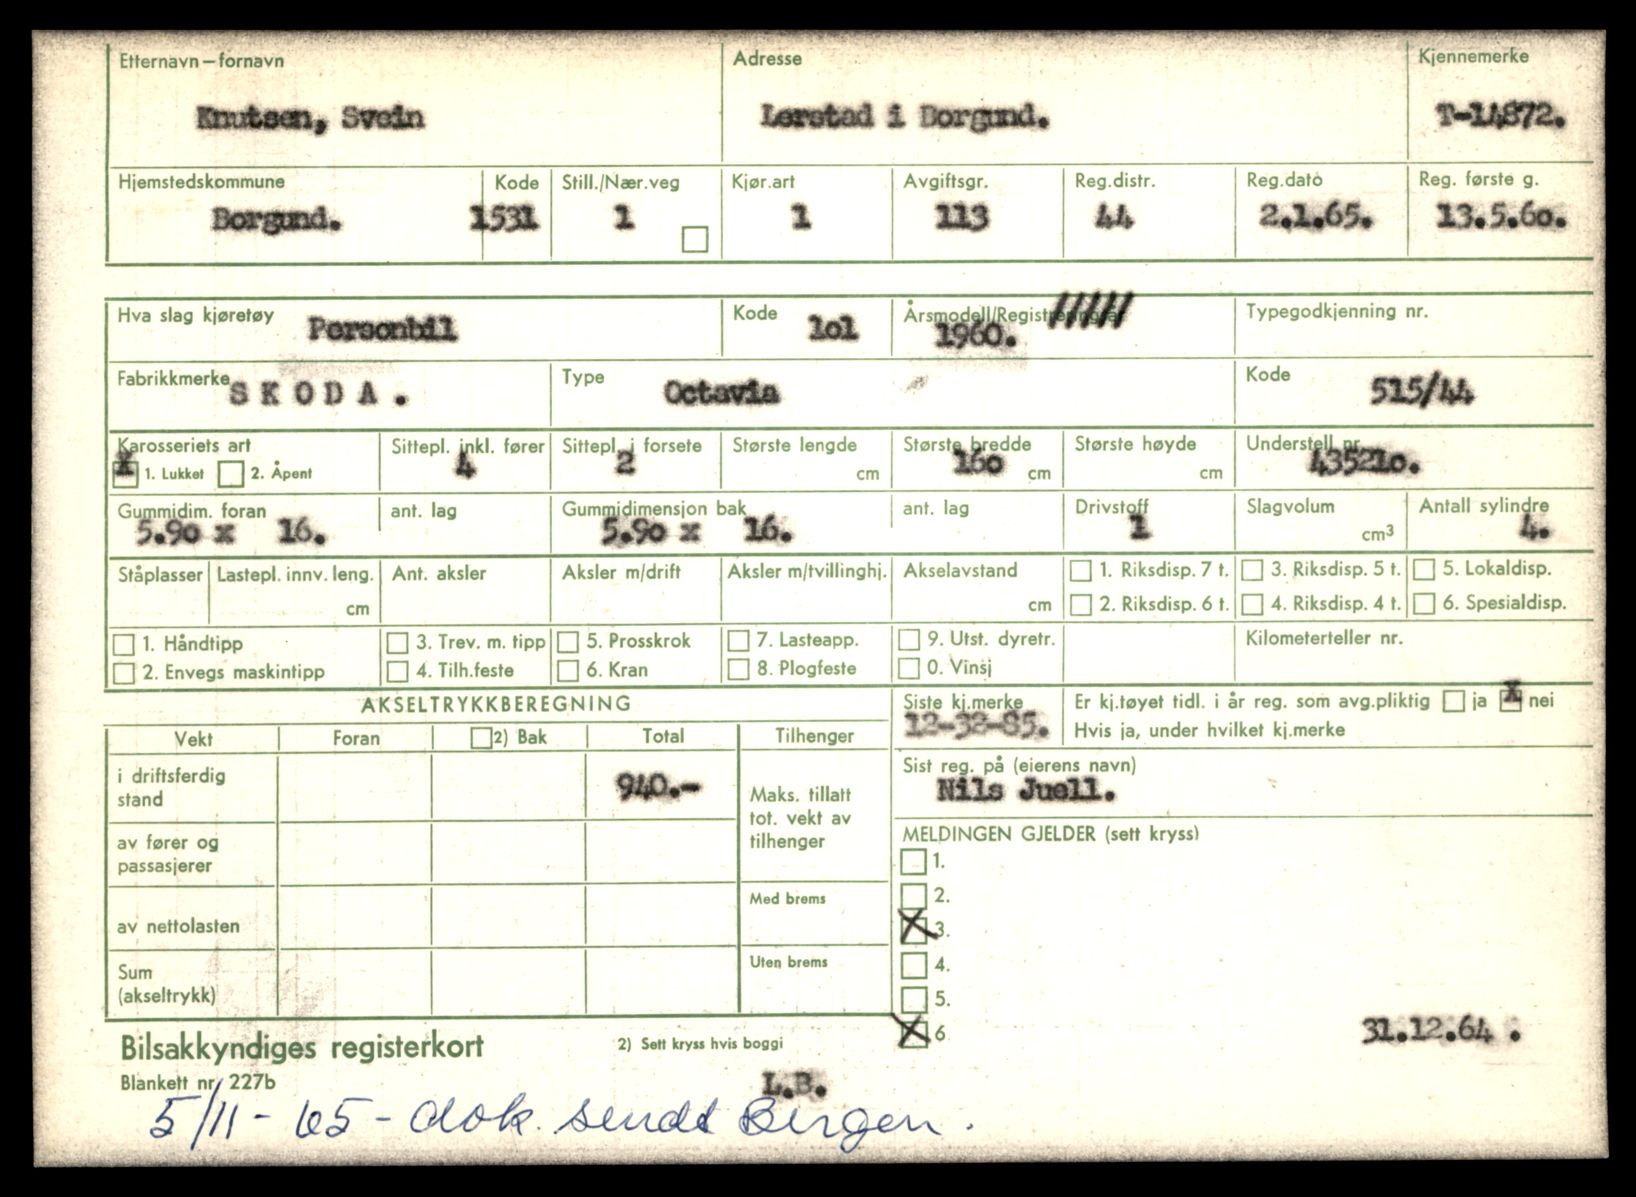 Etternavn – fornavn Adresse Kjennemerke
Knutsen, Svein Lerstad i Borgund. T-14872.
Hjemstedskommune Kode Still./Nær.veg Kjør.art Avgiftsgr. Reg.distr. Reg.dato Reg. første g.
Borgund. 1531 1 1 113 44 2.1.65. 13.5.6o.
Hva slag kjøretøy Personbil Kode lol Årsmodell/Registreringsår 1960. Typegodkjenning nr.
Fabrikkmerke SKODA. Type Octavia Kode 515/44
Karosseriets art Sittepl. inkl. fører Sittepl. i forsete Største lengde Største bredde Største høyde Understell nr.
X 1. Lukket 2. Åpent 4 2 cm 16o cm cm 43521o.
Gummidim. foran ant. lag Gummidimensjon bak ant. lag Drivstoff Slagvolum Antall sylindre
5.9o x 16. 5.9o x 16. 1 cm3 4.
Ståplasser Lastepl. innv. leng. Ant. aksler Aksler m/drift Aksler m/tvillinghj. Akselavstand 1. Riksdisp. 7 t. 3. Riksdisp. 5 t. 5. Lokaldisp.
cm cm 2. Riksdisp. 6 t. 4. Riksdisp. 4 t. 6. Spesialdisp.
1. Håndtipp 3. Trev. m. tipp 5. Prosskrok 7. Lasteapp. 9. Utst. dyretr. Kilometerteller nr.
2. Envegs maskintipp 4. Tilh.feste 6. Kran 8. Plogfeste 0. Vinsj
AKSELTRYKKBEREGNING Siste kj.merke Er kj.tøyet tidl. i år reg. som avg.pliktig ja X nei
12-32-85. Hvis ja, under hvilket kj.merke
Vekt Foran 2) Bak Total Tilhenger
Sist reg. på (eierens navn)
Nils Juell.
i driftsferdig stand 940.-
Maks. tillatt tot. vekt av tilhenger
av fører og passasjerer
MELDINGEN GJELDER (sett kryss)
1.
2.
Med brems
av nettolasten
X 3.
4.
Uten brems
Sum (akseltrykk)
5.
X 6
31.12.64 .
Bilsakkyndiges registerkort 2) Sett kryss hvis boggi
Blankett nr. 227b L.B.
5/11-65 - dok. sendt Bergen.